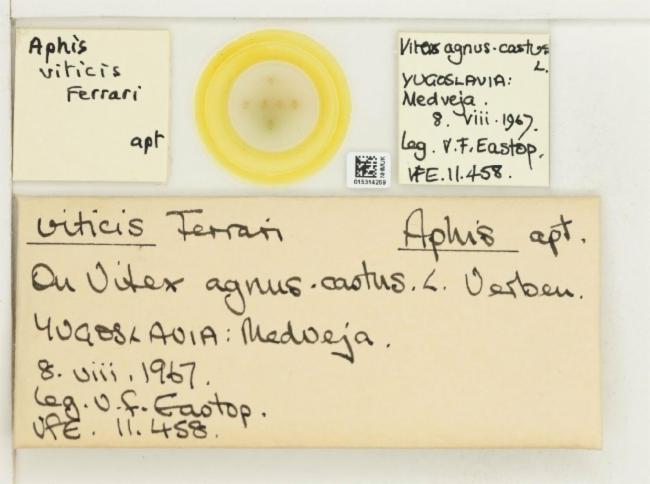 Aphis
viticis
Ferrari
apt
NHMUK
015314269
Vitex agnus-castus
L.
YUGOSLAVIA:
Medveja.
8. viii. 1967.
leg. V.F. Eastop.
VFE. 11.458.
viticis Ferrari Aphis apt.
On Vitex agnus-castus. L. Verben.
YUGOSLAVIA: Medveja.
8. viii. 1967.
Leg. V. F. Eastop.
VFE. 11.458.